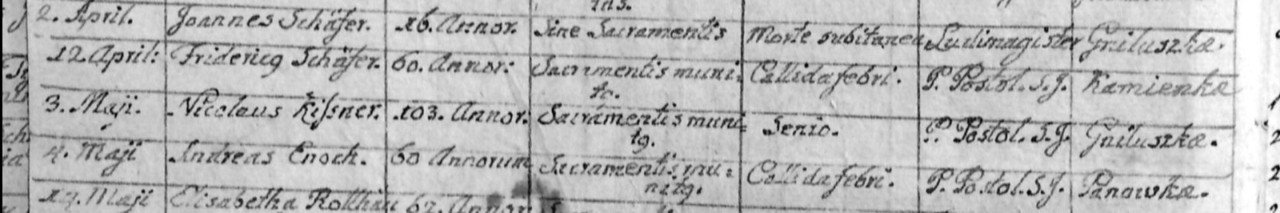 tus.
2. April. Joannes Schäfer. 16. Annor. Sine Sacramentis Morte subitanea Ludimagister Gniluszkæ.
12 April: Fridericg Schäfer. 60. Annor: Sacramentis muni: Callida febri. P. Postol. S.J. Kamienkæ
tg.
3. Maji. Nicolaus Kißner. 103. Annor. Sacramentis muni: Senio. P. Postol. S.J. Gniluszkæ.
tg.
4. Maji Andreas Enoch. 60 Annorum Sacramentis mu: Callida febri. P. Postol. S.J. Panawkæ.
nitg.
Maji Elisabetha 62. Annor